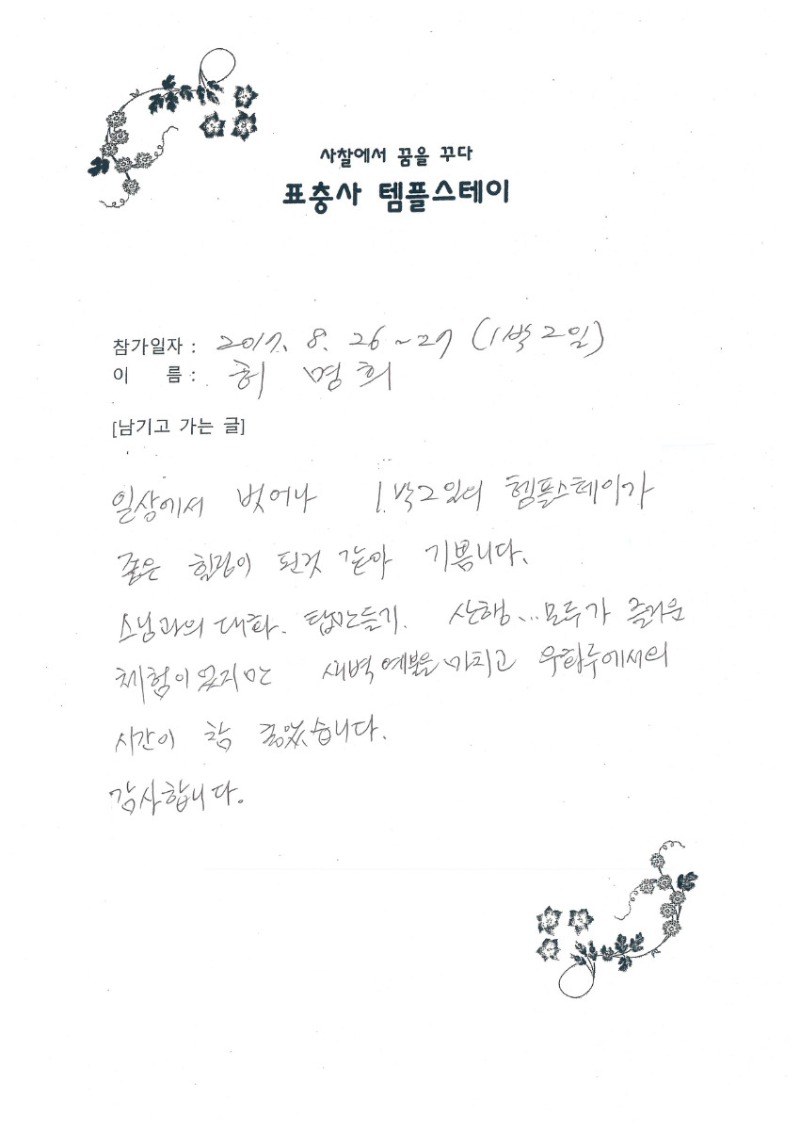 사찰에서 꿈을 꾸다
표충사 템플스테이
참가일자 : 2017. 8. 26 ~ 27 (1박 2일)
이 름 : 허 명 희
[남기고 가는 글]
일상에서 벗어나 1박2일의 템플스테이가
좋은 힐링이 된것 같아 기쁩니다.
스님과의 대화. 탑만들기. 산행... 모두가 즐거운
체험이었지만 새벽예불을 마치고 우화루에서의
시간이 참 좋았습니다.
감사합니다.